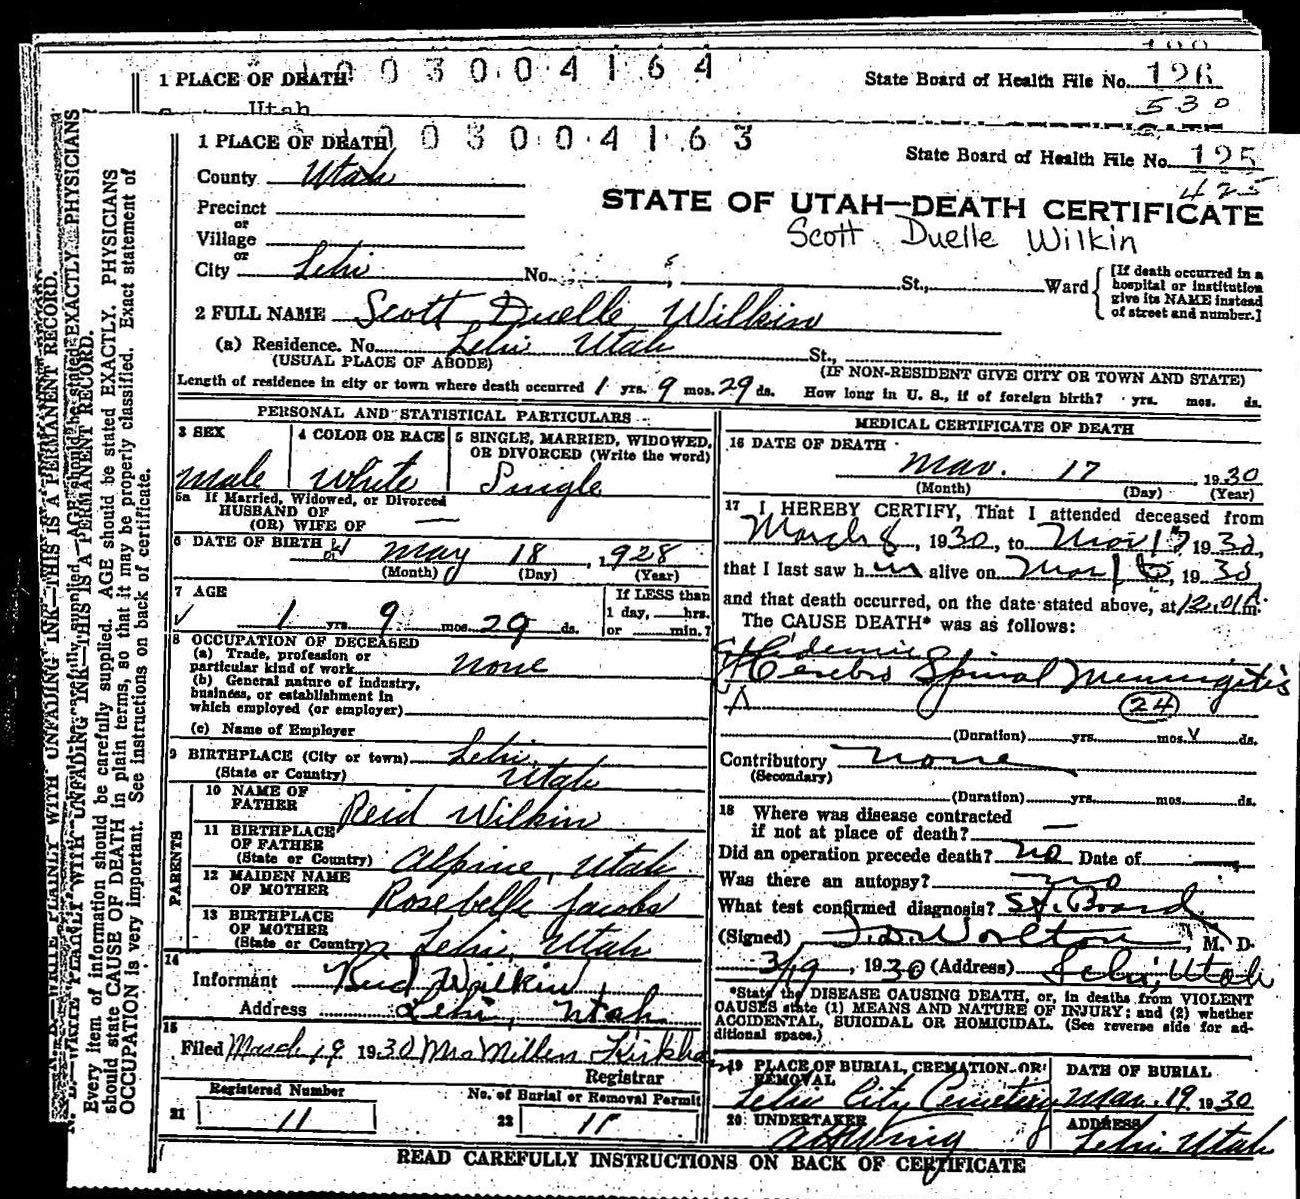 1 PLACE OF DEATH 003004164
State Board of Health File No. 126
530
Utah
1 PLACE OF DEATH 003004163
State Board of Health File No. 125
425
County Utah
STATE OF UTAH—DEATH CERTIFICATE
Precinct
Scott Duelle Wilkin
or
Village
or
City Lehi No. St., Ward
[If death occurred in a
hospital or institution
give its NAME instead
of street and number.]
2 FULL NAME Scott Duelle Wilkin
(a) Residence. No. Lehi Utah St.,
(USUAL PLACE OF ABODE) (IF NON-RESIDENT GIVE CITY OR TOWN AND STATE)
Length of residence in city or town where death occurred 1 yrs. 9 mos. 29 ds. How long in U. S., if of foreign birth? yrs. mos. ds.
PERSONAL AND STATISTICAL PARTICULARS
3 SEX
male
4 COLOR OR RACE
White
5 SINGLE, MARRIED, WIDOWED,
OR DIVORCED (Write the word)
Single
5a If Married, Widowed, or Divorced
HUSBAND OF
(OR) WIFE OF —
6 DATE OF BIRTH May 18, 1928
(Month) (Day) (Year)
7 AGE
1 yrs. 9 mos. 29 ds.
If LESS than
1 day, hrs.
or min.?
8 OCCUPATION OF DECEASED
(a) Trade, profession or
particular kind of work none
(b) General nature of industry,
business, or establishment in
which employed (or employer)
(c) Name of Employer
9 BIRTHPLACE (City or town) Lehi,
(State or Country) Utah
PARENTS
10 NAME OF
FATHER Reid Wilkin
11 BIRTHPLACE
OF FATHER
(State or Country) Alpine, Utah
12 MAIDEN NAME
OF MOTHER Rosebelle Jacobs
13 BIRTHPLACE
OF MOTHER
(State or Country) Lehi, Utah
14
Informant Reid Wilkin
Address Lehi, Utah
15
Filed March 19 1930 Mrs Millen Kirkham
Registrar
Registered Number
21 11
No. of Burial or Removal Permit
22 11
MEDICAL CERTIFICATE OF DEATH
16 DATE OF DEATH
Mar. 17 1930
(Month) (Day) (Year)
17 I HEREBY CERTIFY, That I attended deceased from
March 8, 1930, to Mar 17 1930,
that I last saw him alive on Mar 16, 1930
and that death occurred, on the date stated above, at 12.01 m.
The CAUSE DEATH* was as follows:
Epidemic
Cerebro Spinal Meningitis
24
(Duration) yrs. mos. ds.
Contributory none
(Secondary)
(Duration) yrs. mos. ds.
18 Where was disease contracted
if not at place of death? —
Did an operation precede death? no Date of —
Was there an autopsy? no
What test confirmed diagnosis? St. Board
(Signed) , M. D.
3/19, 1930 (Address) Lehi, Utah
*State the DISEASE CAUSING DEATH, or, in deaths from VIOLENT
CAUSES state (1) MEANS AND NATURE OF INJURY; and (2) whether
ACCIDENTAL, SUICIDAL OR HOMICIDAL. (See reverse side for ad-
ditional space.)
19 PLACE OF BURIAL, CREMATION OR
REMOVAL
Lehi City Cemetery
DATE OF BURIAL
Mar. 19 1930
20 UNDERTAKER
A H Wing
ADDRESS
Lehi Utah
READ CAREFULLY INSTRUCTIONS ON BACK OF CERTIFICATE
N. B.—WRITE PLAINLY WITH UNFADING INK—THIS IS A PERMANENT RECORD.
Every item of information should be carefully supplied. AGE should be stated EXACTLY. PHYSICIANS
should state CAUSE OF DEATH in plain terms, so that it may be properly classified. Exact statement of
OCCUPATION is very important. See instructions on back of certificate.